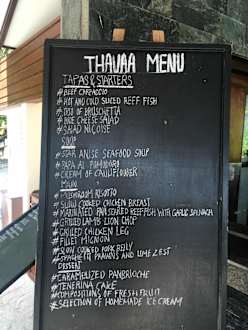 THAVAA MENU
TAPAS & STARTERS
# BEEF CARPACCIO
# HOT AND COLD SLICED REEF FISH
# TRIO OF BRUSCHETTA
# BRIE CHEESE SALAD
# SALAD NIÇOISE
SOUP
# STAR ANISE SEAFOOD SOUP
# PAPA AL POMODORO
# CREAM OF CAULIFLOWER
MAIN
# MUSHROOM RISOTTO
# SLOW COOKED CHICKEN BREAST
# MARINATED PAN SEARED REEF FISH WITH GARLIC SPINACH
# GRILLED LAMB LION CHOP
# GRILLED CHICKEN LEG
# FILLET MIGNON
# SLOW COOKED PORK BELLY
# SPAGHETTI PRAWNS AND LIME ZEST
DESSERT
# CARAMELIZED PAN BRIOCHE
# TENERINA CAKE
# COMPOSITIONS OF FRESH FRUIT
# SELECTION OF HOMEMADE ICE CREAM